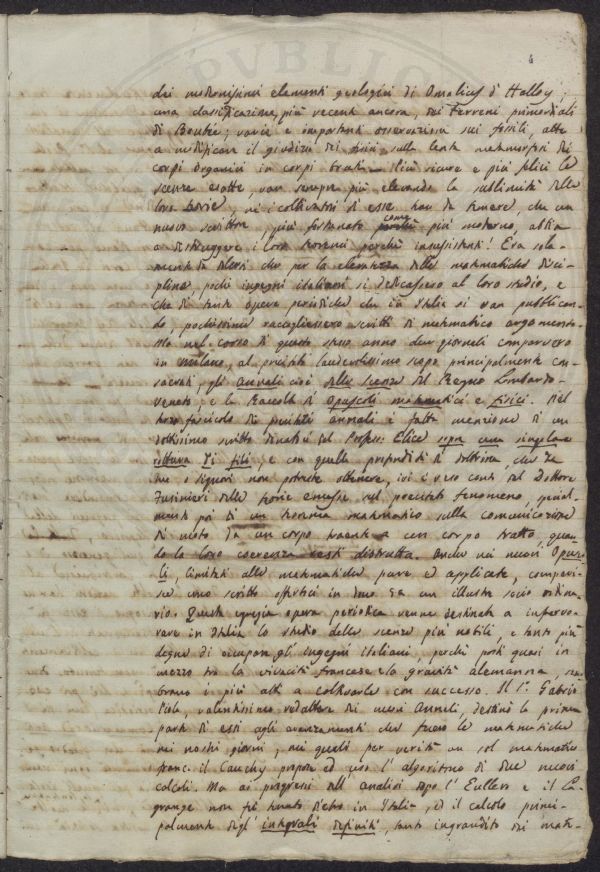 PVBLIC
4
dei modernissimi elementi geologici di Omalius d'Halloy;
una classificazione, più recente ancora, dei terreni primordiali
di Boubée; varie e importanti osservazioni sui fossili, atte
a modificare il giudizio dei fisici sulla lenta metamorfosi dei
corpi organici in corpi bruti. Più sicure e più felici le
scienze esatte, van sempre più elevando la sublimità delle
loro teorie, nè i coltivatori di esse han da temere, che un
nuovo scrittore, più fortunato come più moderno, abbia
a distruggere i loro teoremi perchè insussistenti! Era sola-
mente a dolersi che per la elevatezza delle matematiche disci-
pline, pochi ingegni italiani si dedicassero al loro studio, e
che di tante opere periodiche che in Italia si van pubblican-
do, pochissime raccogliessero scritti di matematico argomento.
Ma nel corso di questo stesso anno due giornali comparvero
in Milano, al preciti laudevolissimo scopo principalmente con-
sacrati, gli Annali cioè delle Scienze del Regno Lombardo-
Veneto, e la Raccolta di Opuscoli matematici e fisici. Nel
terzo fascicolo di precitati annali è fatta menzione di un
dottissimo scritto del Profess. Elice sopra una singolare
rottura di fili, e con quella profondità di dottrina, che da
me o signori non potreste ottenere, ivi è reso conto dal Dottore
Fusinieri delle teorie emesse sul precitato fenomeno, special-
mente poi di un teorema matematico sulla comunicazione
di moto da un corpo traente a un corpo tratto, quan-
do la loro coerenza resti distrutta. Anche nei nuovi Opusco-
li, limitati alle matematiche pure ed applicate, compari-
sce uno scritto offertoci in dono da un illustre socio ordina-
rio. Questa egregia opera periodica venne destinata a infervo-
rare in Italia lo studio delle scienze più nobili, e tanto più
degne di occupare gli ingegni italiani, perchè posti quasi in
mezzo tra la vivacità francese e la gravità alemanna, sem-
brano i più atti a coltivarle con successo. Il S.r Gabrio
Piola, valentissimo redattore dei nuovi Annali, destinò la prima
parte di essi agli avanzamenti che fecero le matematiche
nei nostri giorni, nei quali per verità un sol matematico
franc. il Cauchy propose ed usò l'algoritmo di due nuovi
calcoli. Ma ai progressi dell'analisi dopo l'Eulero e il La-
grange non fu tenuto dietro in Italia, ed il calcolo princi-
palmente degl'integrali definiti, tanto ingrandito dei mate-